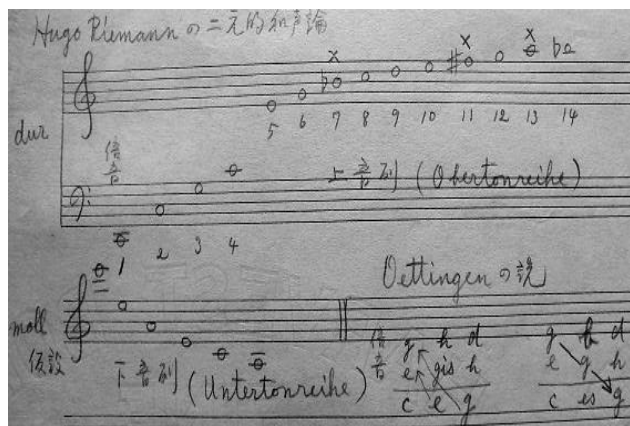 Hugo Riemannの二元的和声論
x x x
♭ # ♭
5 6 7 8 9 10 11 12 13 14
dur
倍音
上音列 (Obertonreihe)
1 2 3 4
Oettingenの説
moll
仮設
下音列 (Untertonreihe)
倍音
g h d
e gis h
c e g
g h d
e g h
c es g